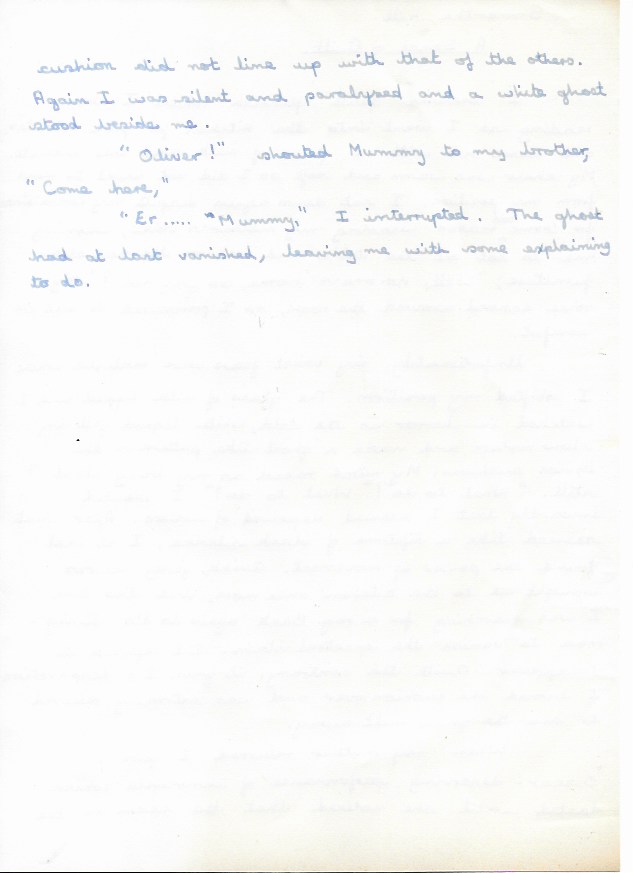 cushion did not line up with that of the others.
Again I was silent and paralysed and a white ghost
stood beside me.
"Oliver!" shouted Mummy to my brother,
"Come here,"
"Er..... "Mummy," I interrupted. The ghost
had at last vanished, leaving me with some explaining
to do.